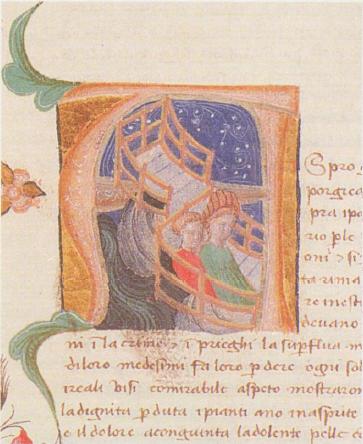 Spro
porgea
pra ipo
rio ple
oni & si
ta rima
re mest
devano
ni i lacrime & i prieghi la supflua m
di loro medesimi fa loro pdere ogni sol
ireali visi comirabile aspeto mostraron
la dignita pduta ipianti ano inasprite
e il dolore aconguinta la dolente pelle